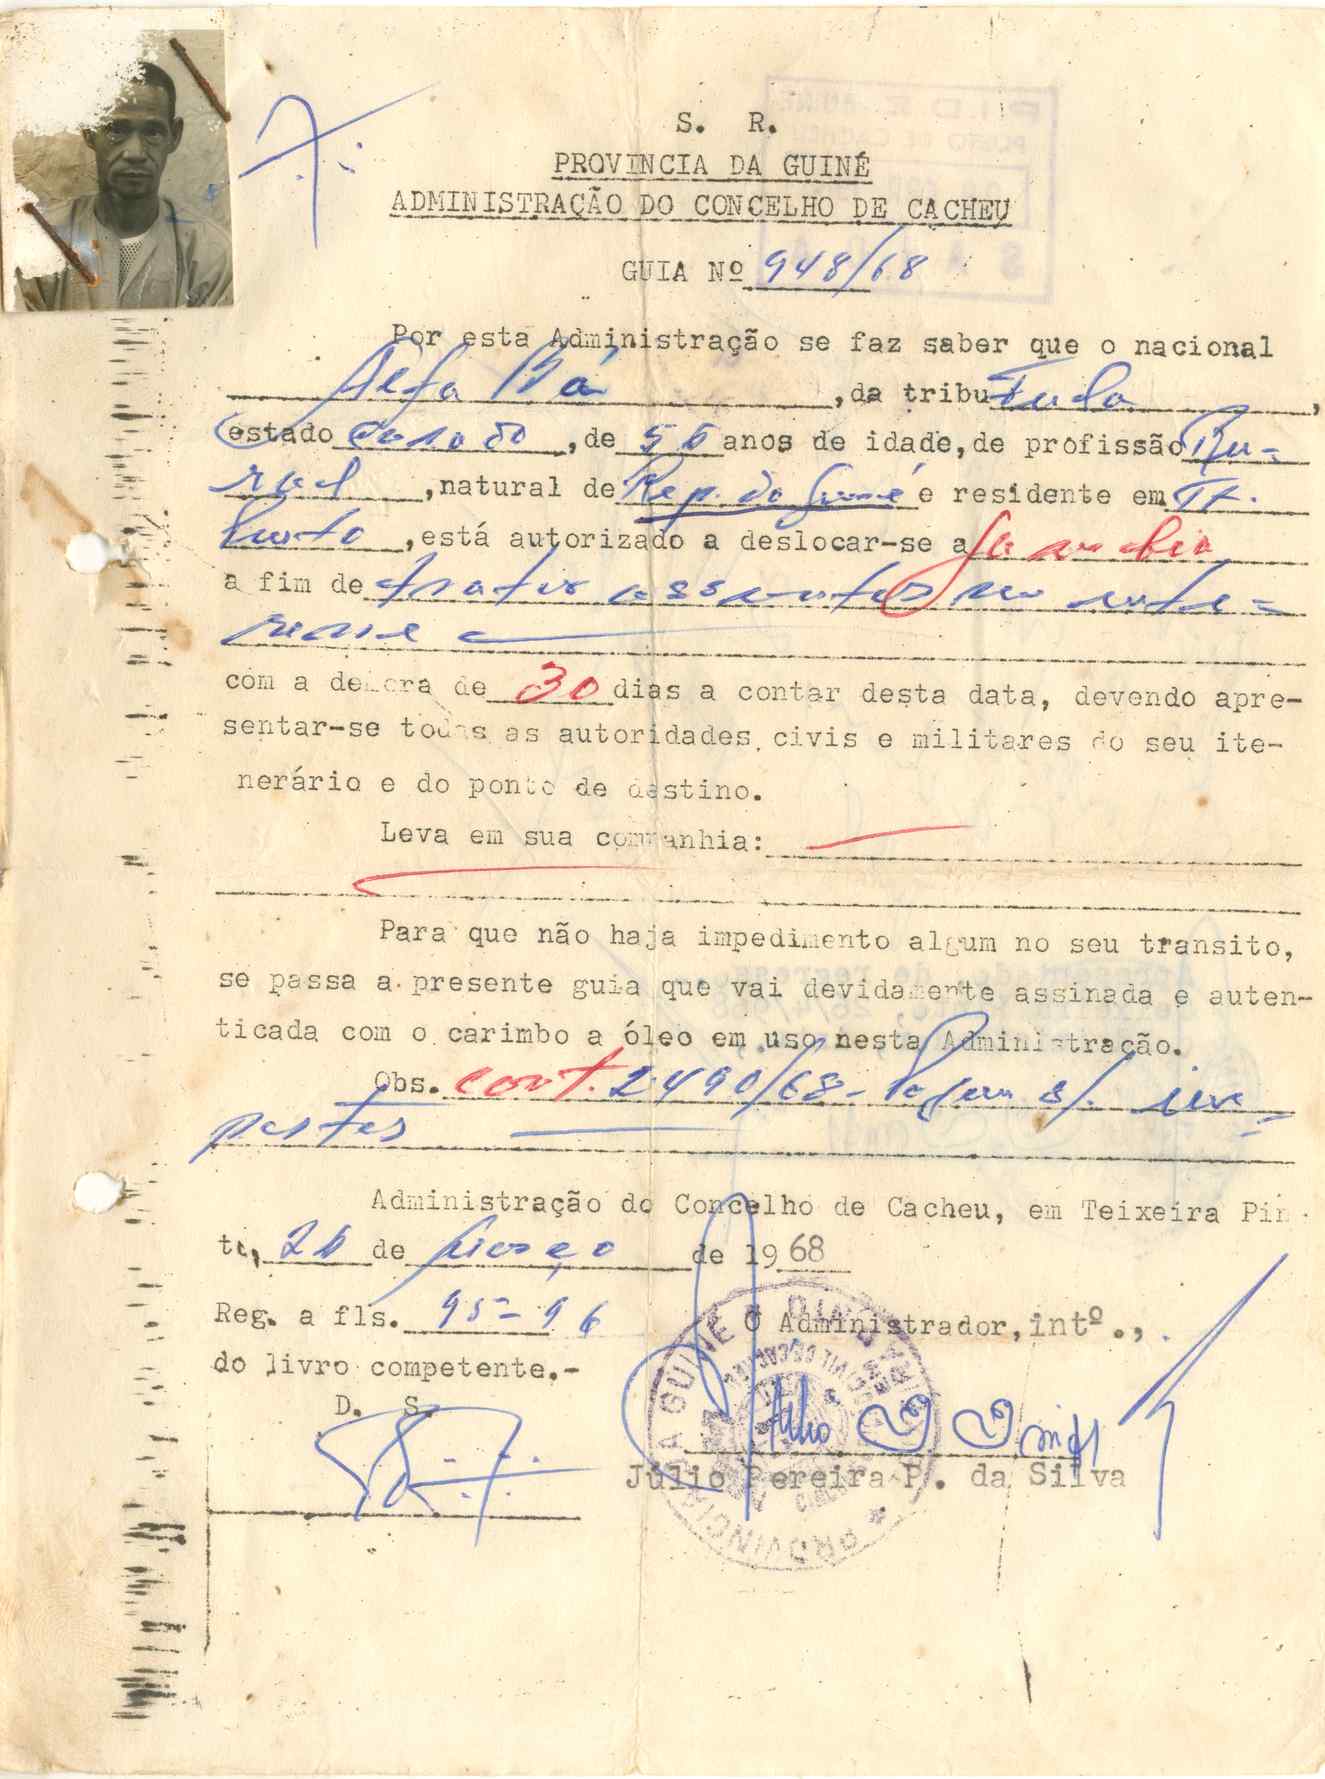 S. R.
PROVINCIA DA GUINÉ
ADMINISTRAÇÃO DO CONCELHO DE CACHEU
GUIA Nº 948/68
Por esta Administração se faz saber que o nacional
Alfa Bá, da tribu Fula,
estado casado, de 56 anos de idade, de profissão Ru-
ral, natural de Rep. da Guiné e residente em Tx.
Pinto, está autorizado a deslocar-se a Gambia
a fim de tratar assuntos seu inte-
resse
com a demora de 30 dias a contar desta data, devendo apre-
sentar-se todas as autoridades civis e militares do seu ite-
nerário e do ponto de destino.
Leva em sua companhia:
Para que não haja impedimento algum no seu transito,
se passa a presente guia que vai devidamente assinada e auten-
ticada com o carimbo a óleo em uso nesta Administração.
Obs. cont. 2490/68 - Pagou s/. im-
postos
Administração do Concelho de Cacheu, em Teixeira Pin-
to, 26 de Março de 1968
Reg. a fls. 95-96
O Administrador, intº.,
do livro competente.-
D. S.
Júlio Pereira P. da Silva
PROVINCIA DA GUINÉ